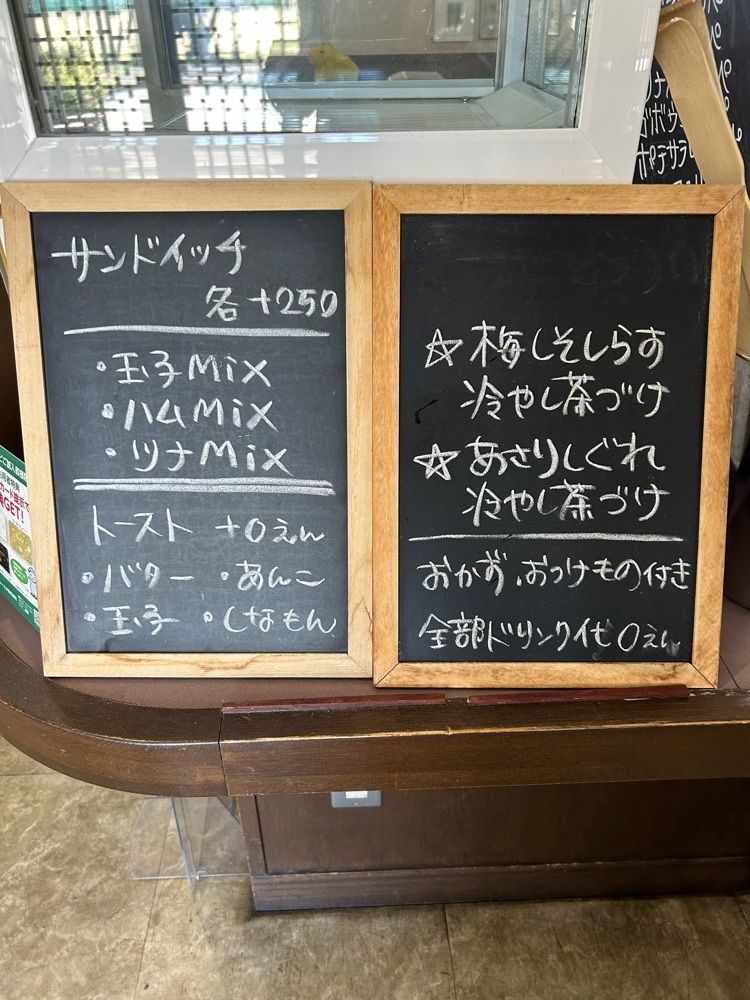 サンドイッチ
各 +250
・玉子Mix
・ハムMix
・ツナMix
トースト +0えん
・バター ・あんこ
・玉子 ・しなもん
☆梅しそしらす
冷やし茶づけ
☆あさりしぐれ
冷やし茶づけ
おかず、おつけもの付き
全部ドリンク代0えん
GET!
ポテサラ